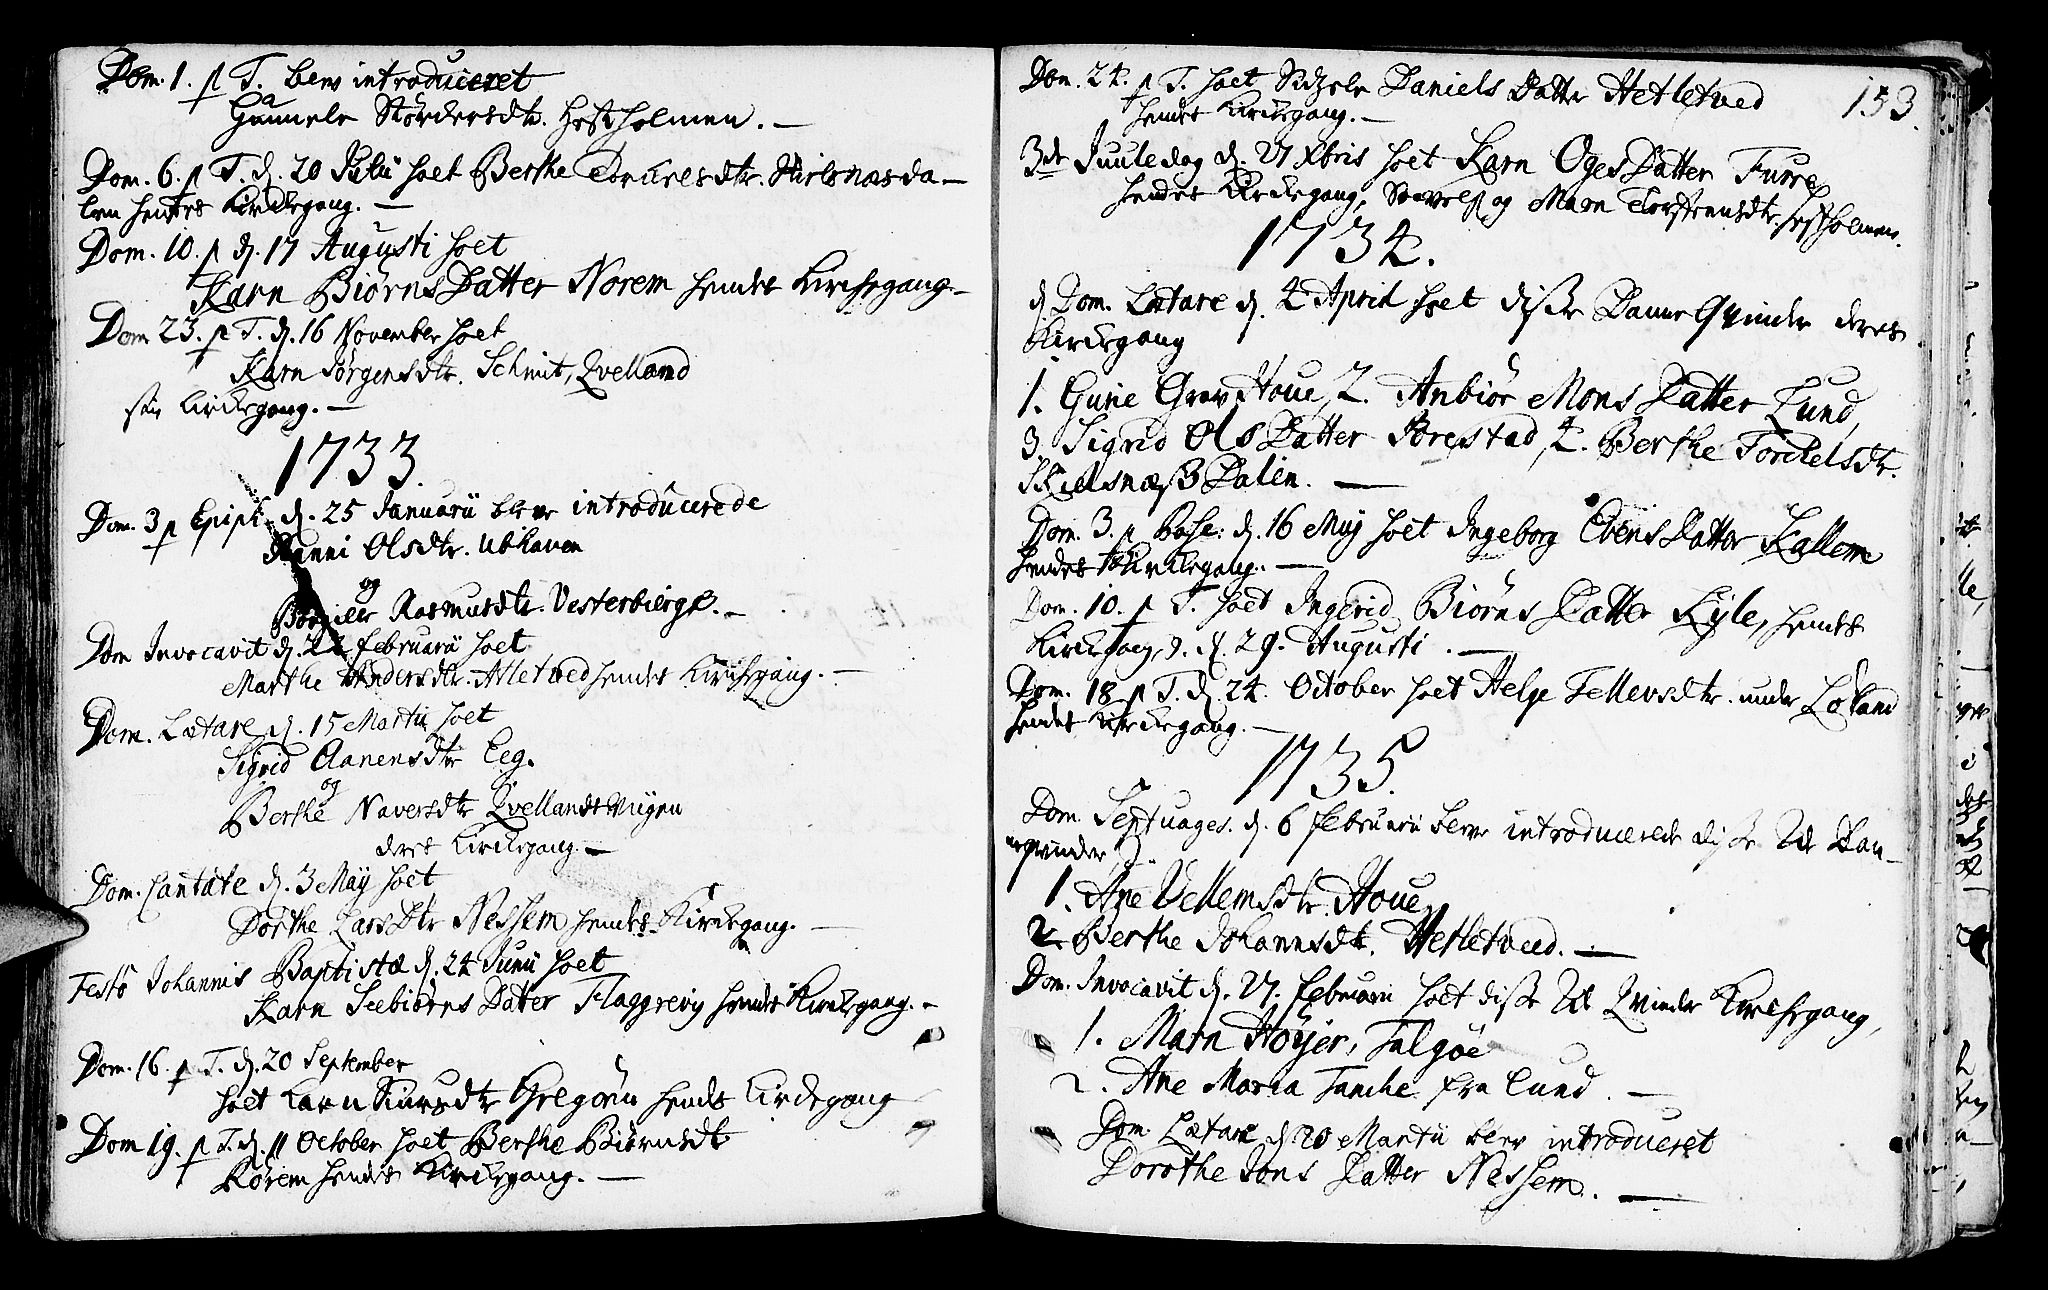 Dom. 1. p T. blev introduceret
Gunnele Størdersdtr. Hestholmen. —
Dom. 6. p T. d. 20 Julii holt Berthe Torchresdtr. Skielsnæsda-
len hendes Kirckegang. —
Dom. 10. p d. 17 Augusti holt
Karn Biørns Datter Norem hendes Kirchegang —
Dom 23. p T. d. 16 November holt
Karn Jørgensdtr. Schmit, Qvelland
sin Kirckegang. —
1733.
Dom. 3 p Epiph. d. 25 Januarii bleve introducerede
Ranni Olsdtr. Ubhaven
og
Rasmusdtr. Vesterbierge. —
Dom Invocavit d. 22 Februarii holt
Marthe Andersdtr. Atletved hendes Kirchegang. —
Dom. Lætare d. 15 Martii holt
Sigrid Aanensdtr Eeg.
og
Berthe Naversdtr Qvellandsviigen
deres Kirckegang. —
Dom. Cantate d. 3 Maÿ holt
Dorthe Larsdtr Nessem hendes Kirckegang. —
Festo Johannis Baptistæ d. 24 Junii holt
Karn Seebiørns Datter Flaggrevig hendes Kirckegang. —
Dom. 16. p T. d. 20 September
holt Karn Siursdtr Gregøen hendes Kirckegang
Dom 19. p T. d. 11 October holt Berthe Biørnsdtr
Rørem hendes Kirckegang. —
Dom. 24. p T. holt Sidzele Daniels Datter Hetletved 153.
hendes Kirckegang. —
3de Juuledag d. 27 Xbris holt Karn Oges Datter Furre
hendes Kirckegang, Saavelsom og Marn Torstensdtr. Hestholmen.
1734.
d Dom. Lætare d. 4 April holt diße Danne Qvinder deres
Kirckegang
1. Gurie Grav Houe, 2. Anbiør Mons Datter Lund,
3. Sigrid Ols Datter Brestad, 4. Berthe Torchelsdtr.
Skielsnæß Dalen. —
Dom. 3. p Pasc: d. 16 Maij holt Ingeborg Evens Datter Kallem
hendes Kirckegang. —
Dom. 10. p T. holt Ingerid Biørns Datter Kyle, hendes
Kirckgang, d. 29. Augusti. —
Dom. 18 p T. d. 24. October holt Helge Tellevsdtr. under Lodland
hendes Kirckegang. —
1735.
Dom Septuages. d. 6 Februarii bleve introducerede diße 2de Dan-
neqvinder,
1. Ane Vellemsdtr. Houe,
2. Berthe Johannsdtr. Hetletved. —
Dom. Invocavit d. 27. Februarii holt diße 2de Qvinder Kirchegang,
1. Marn Høÿer, Talgøe
2. Ane Maria Tanche fra Lund. —
Dom Lætare d 20 Martii blev introduceret
Dorothe Jons Datter Nessem. —